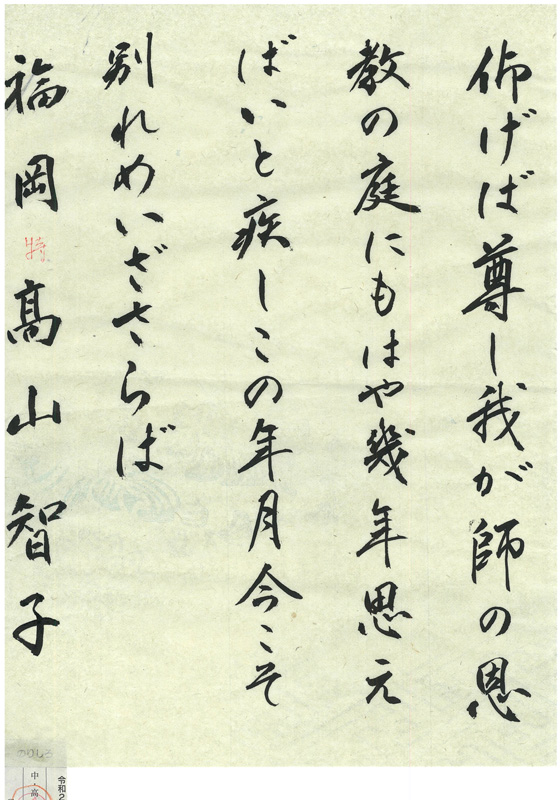 仰げば尊し我が師の恩
教の庭にもはや幾年思元
ばいと疾しこの年月今こそ
別れめいざさらば
福岡 特 髙山智子
のりしろ
中・高
令和2